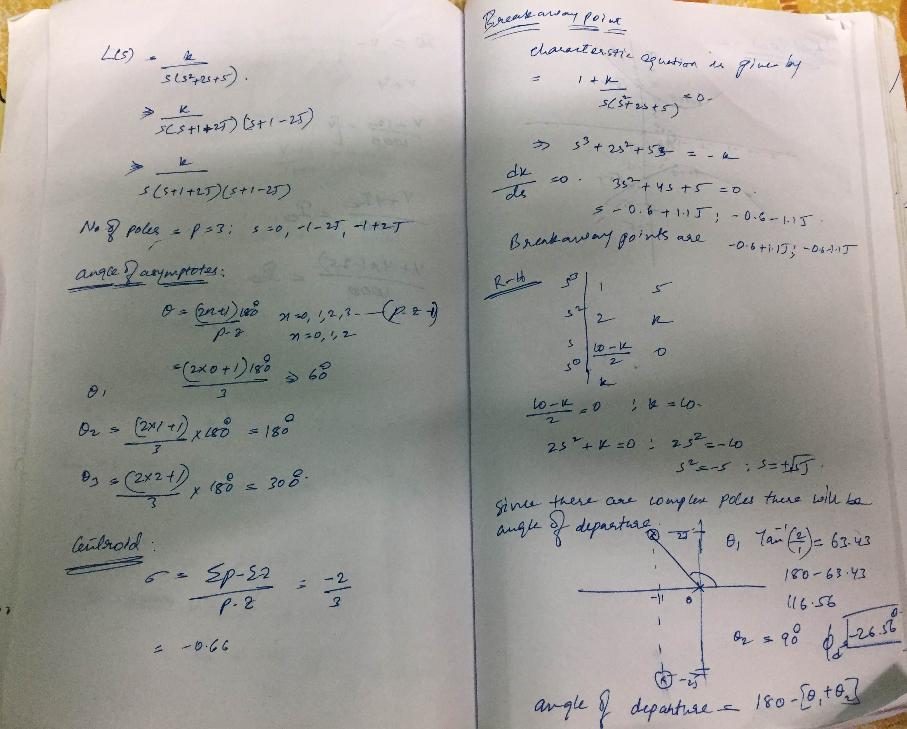 L(s) = k / s(s²+2s+5).
⇒ k / s(s+1+2J)(s+1-2J)
⇒ k / s(s+1+2J)(s+1-2J)
No of poles = P=3; s=0, -1-2J, -1+2J
angle of asymptotes:
θ = (2n+1)180° / P-z n=0,1,2,3--(P-z-1)
n=0,1,2
θ1 = (2x0+1)180° / 3 ⇒ 60°
θ2 = (2x1+1) / 3 x 180° = 180°
θ3 = (2x2+1) / 3 x 180° = 300°.
Centroid:
σ = Σp-Σz / p-z = -2 / 3
= -0.66
Breakaway point
characterstic equation is given by
= 1+ k / s(s²+2s+5) = 0.
⇒ s³+2s²+5s = -k
dk/ds = 0. 3s²+4s+5 = 0.
s -0.6+1.1J; -0.6-1.1J.
Breakaway points are -0.6+1.1J; -0.6-1.1J
R-H
s³ 1 5
s² 2 k
s 10-k / 2 0
s⁰ k
10-k / 2 = 0 ; k = 10.
2s²+k=0 ; 2s²=-10
s²=-5 ; s=±√5J.
Since there are complex poles there will be
angle of departure.
2J θ1 Tan⁻¹(2/1) = 63.43
180-63.43
-1 0 116.56
θ2 = 90° ϕd -26.56°
-2J
angle of departure = 180-[θ1+θ2]